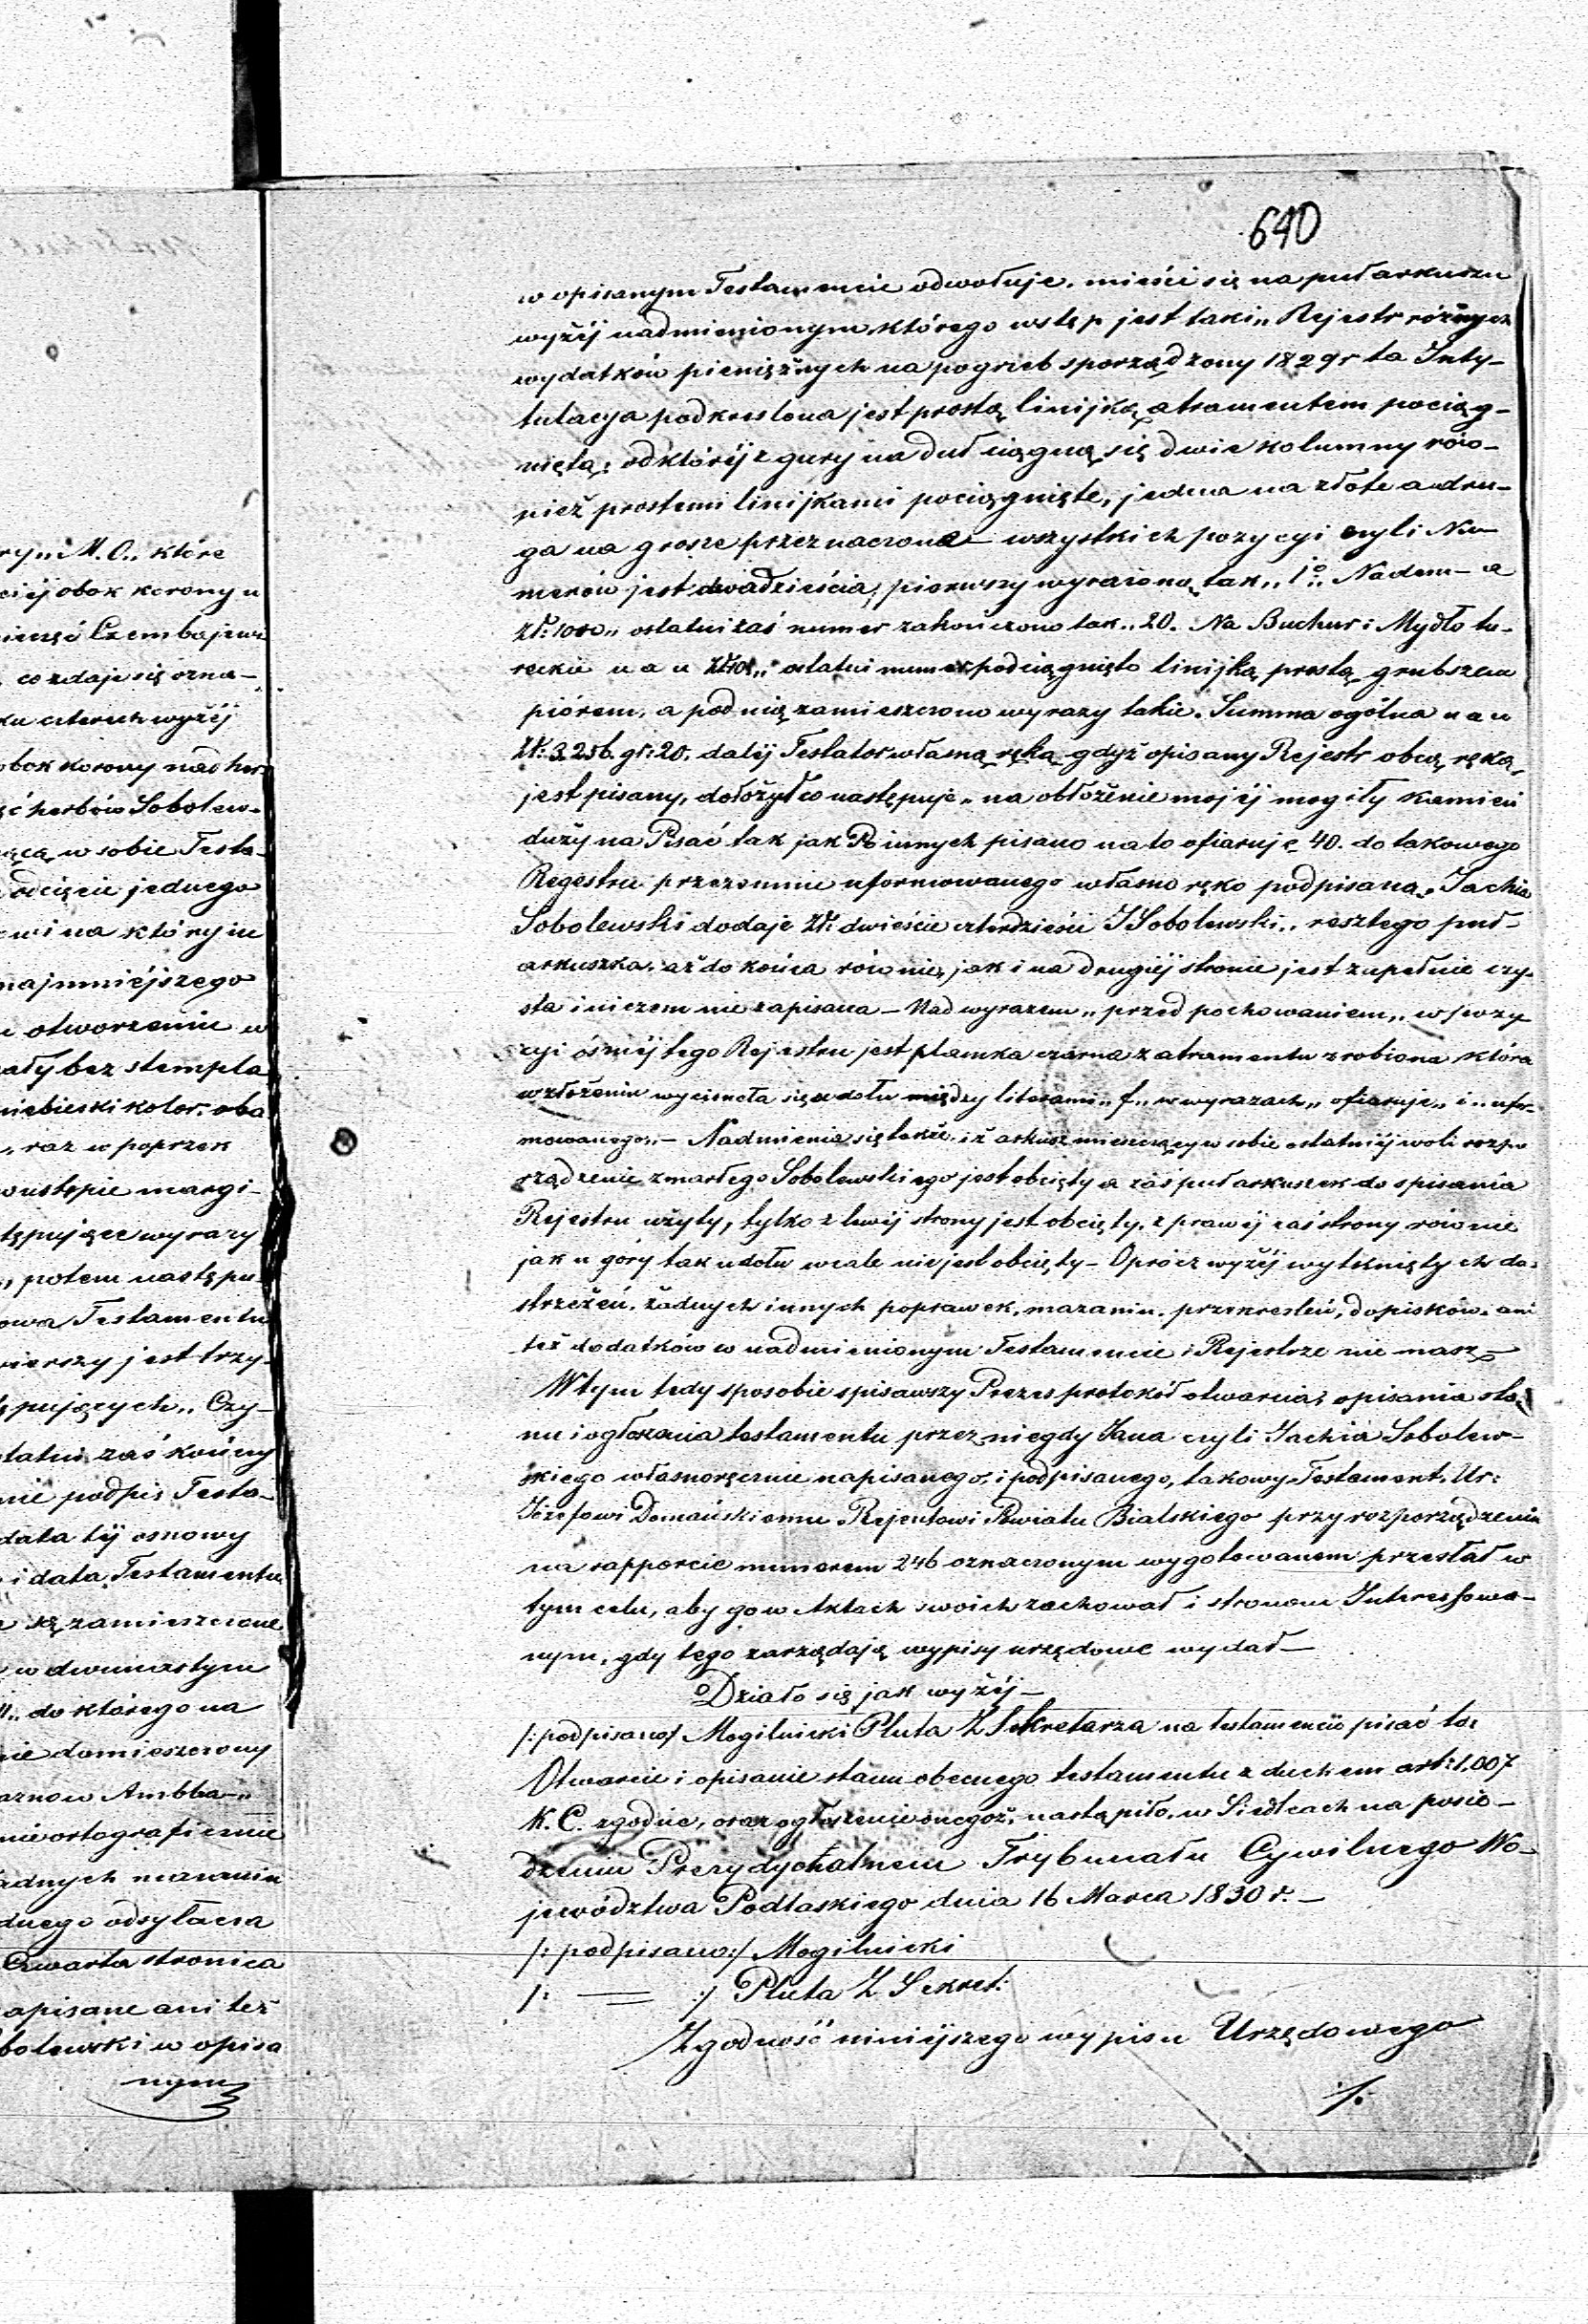 640
w opisanym Testamencie odwołuje. mieści się na puł arkuszu
wyżéj nadmienionym którego wstęp jest taki „ Rejestr różnych
wydatków pieniężnych na pogrzeb sporządzony 1829 r ta Inty-
tulacya podkreslona jest prostą linijką atramentem pociąg-
niętą; od któréj z gury na duł ciągną się dwie kolumny rów-
nież prostemi linijkami pociągnięte, jedna na złote a dru-
ga na grosze przeznaczona – wszystkich pozycyi czyli Nu-
merów jest dwadzieścia, pierwszy wyrażono tak „ 1º „ Nadem – a
zł: 1000 „ ostatni zaś numer zakończono tak „ 20. Na Buchur i Mydło tu-
reckie u a u „ ostatni numer podciągnięto linijką prostą grubszem
piórem, a pod nią zamieszczono wyrazy takie. Summa ogólna u a u
Zł: 3,256. gr: 20. daléj Testator własną ręką gdyż opisany Rejestr obcą ręką,
jest pisany, dołożył co następuje „ na obłożenie mojéj mogiły kamień
duży na Pisać tak jak Po innych pisano na to ofiaruje 40. do takowego
Regestru przezemnie uformowanego własno ręko podpisana „ Jachia
Sobolewski dodaje Zł: dwieście czterdzieści J Sobolewski „ resztego puł-
arkuszka. aż do końca równie, jak i na drugiéj stronie jest zupełnie czy-
sta i niczem nie zapisana – Nad wyrazem „ przed pochowaniem „ w pozy
cyi ósméj tego Rejestru jest plamka czarna z atramentu zrobiona która
w złożeniu wycisnęła się u dołu między literami „ f „ w wyrazach „ ofiaruje „ i „ ufor-
mowanego „ – Nadmienia się także iż arkusz mieszczący w sobie ostatniéj woli rozpo
rządzenie zmarłego Sobolewskiego jest obcięty a zaś puł arkuszek do spisania
Rejestru użyty, tylko z lewéj strony jest obcięty. z prawéj zaś strony równie
jak u góry tak u dołu wcale nie jest obcięty – Oprócz wyżéj wytkniętych do-
strzeżeń. żadnych innych poprawek, mazaniu. przekresleń, dopisków. ani
też dodatków w nadmienionym Testamencie i Rejestrze nie masz –
W tym tedy sposobie spisawszy Prezes protokół otwarcia, opisania sta-
nu i ogłoszenia testamentu przez niegdy Jana czyli Jachia Sobolew-
skiego własnoręcznie napisanego, i podpisanego, takowy Testament, Ur:
Józefowi Domańskiemu Rejentowi Powiatu Bialskiego przy rozporządzeniu
na rapporcie numerem 246 oznaczonym wygotowanem przesłał w
tym celu, aby go w Aktach swoich zachował i stronom Interessowa-
nym, gdy tego zarządają wypisy urzędowe wydał –
Działo się jak wyżéj –
/: podpisano/ Mogilnicki Pluta Z Sekretarza na testamencie pisać to:
Otwarcie i opisanie stanu obecnego testamentu z duchem art: 1,007
K. C. zgodne, oraz ogłoszenie onegoż, nastąpiło w Siedlcach na posie-
dzeniu Prezydyalnem Trybunału Cywilnego Wo-
jewództwa Podlaskiego dnia 16 Marca 1830 r. –
/: podpisano:/ Mogilnicki
/: = :/ Pluta Z Sekret:
Zgodność niniéjszego wypisu Urzędowego
./.
rym M. O. „ które
ciéj obok korony u
co zdaje się ozna-
ku czterech wyżéj
obok korony nad her-
ść herbów Sobolew-
w sobie Testa-
odcięcie jednego
na którym
najmniéjszego
otworzeniu w
ały bez stempla
niebieski kolor. oba
„ raz w poprzek
wustępie margi-
tępujące wyrazy
„ potem następu-
owa Testamentu
wierszy jest trzy-
pujących „ Czy-
tatni zaś kończy
nie podpis Testa-
data téj osnowy
i data Testamentu
są zamieszczone
w dwunastym
„ do którego na
nie domieszczony
nie ortograficznie
adnych mazaniu
dnego odsyłacza
Czwarta stronica
apisane ani też
bolewski w opisa
nym